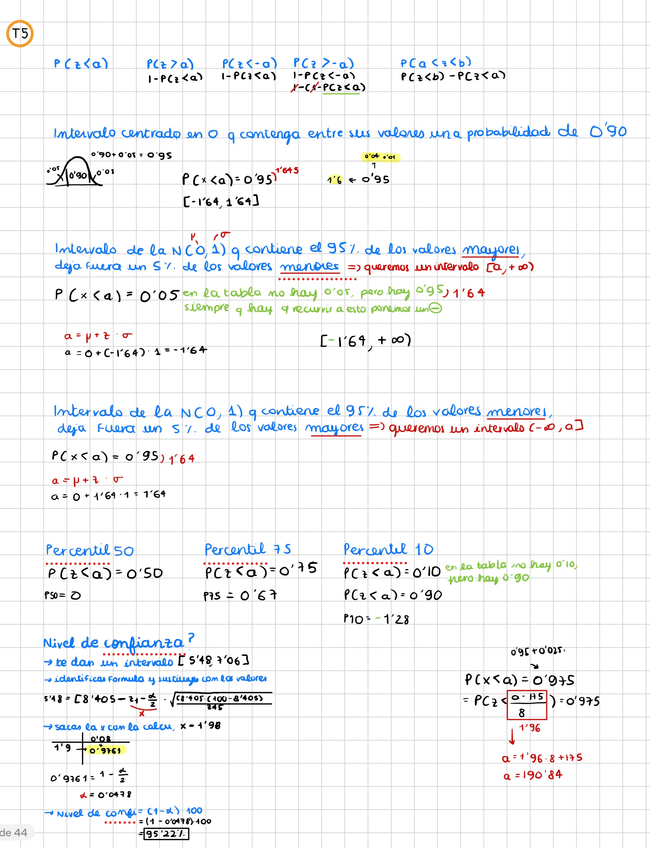 T5
P(z<a) P(z>a) P(z<-a) P(z>-a) P(a<z<b)
1-P(z<a) 1-P(z<a) 1-P(z<-a) P(z<b) - P(z<a)
1-(1-P(z<a)
Intervalo centrado en 0 q contenga entre sus valores una probabilidad de 0'90
0'90+0'05 = 0'95
0'05 0'90 0'05
0'04 0'05
P(x<a) = 0'95) 1'645
1'6 ← 0'95
[-1'64, 1'64]
μ σ
Intervalo de la N(0,1) q contiene el 95% de los valores mayores,
deja fuera un 5% de los valores menores => queremos un intervalo [a,+∞)
P(x<a) = 0'05 en la tabla no hay 0'05, pero hay 0'95) 1'64
siempre q hay q recurrir a esto ponemos un ⊖
a = μ + z · σ
a = 0 + (-1'64) · 1 = -1'64
[-1'64, +∞)
Intervalo de la N(0,1) q contiene el 95% de los valores menores,
deja fuera un 5% de los valores mayores => queremos un intervalo (-∞, a]
P(x<a) = 0'95) 1'64
a = μ + z · σ
a = 0 + 1'64 · 1 = 1'64
Percentil 50 Percentil 75 Percentil 10
P(z<a) = 0'50 P(z<a) = 0'75 P(z<a) = 0'10 en la tabla no hay 0'10,
pero hay 0'90
P50 = 0 P75 = 0'67 P(z<a) = 0'90
P10 = -1'28
Nivel de confianza?
→ te dan un intervalo [5'48, 7'06]
→ identificas formula y sustituyes con los valores
5'48 = [8'405 - z1-α/2 · √((8'405 · (100-8'405))/845)
x
→ sacas la x con la calcu, x = 1'98
0'08
1'9 → 0'9761
0'9761 = 1 - α/2
α = 0'0478
→ Nivel de confi = (1-α) 100
= (1 - 0'0478) · 100
= 95'22%
0'95 + 0'025
P(x<a) = 0'975
= P(z < (a - 175)/8) = 0'975
1'96
a = 1'96 · 8 + 175
a = 190'84
de 44